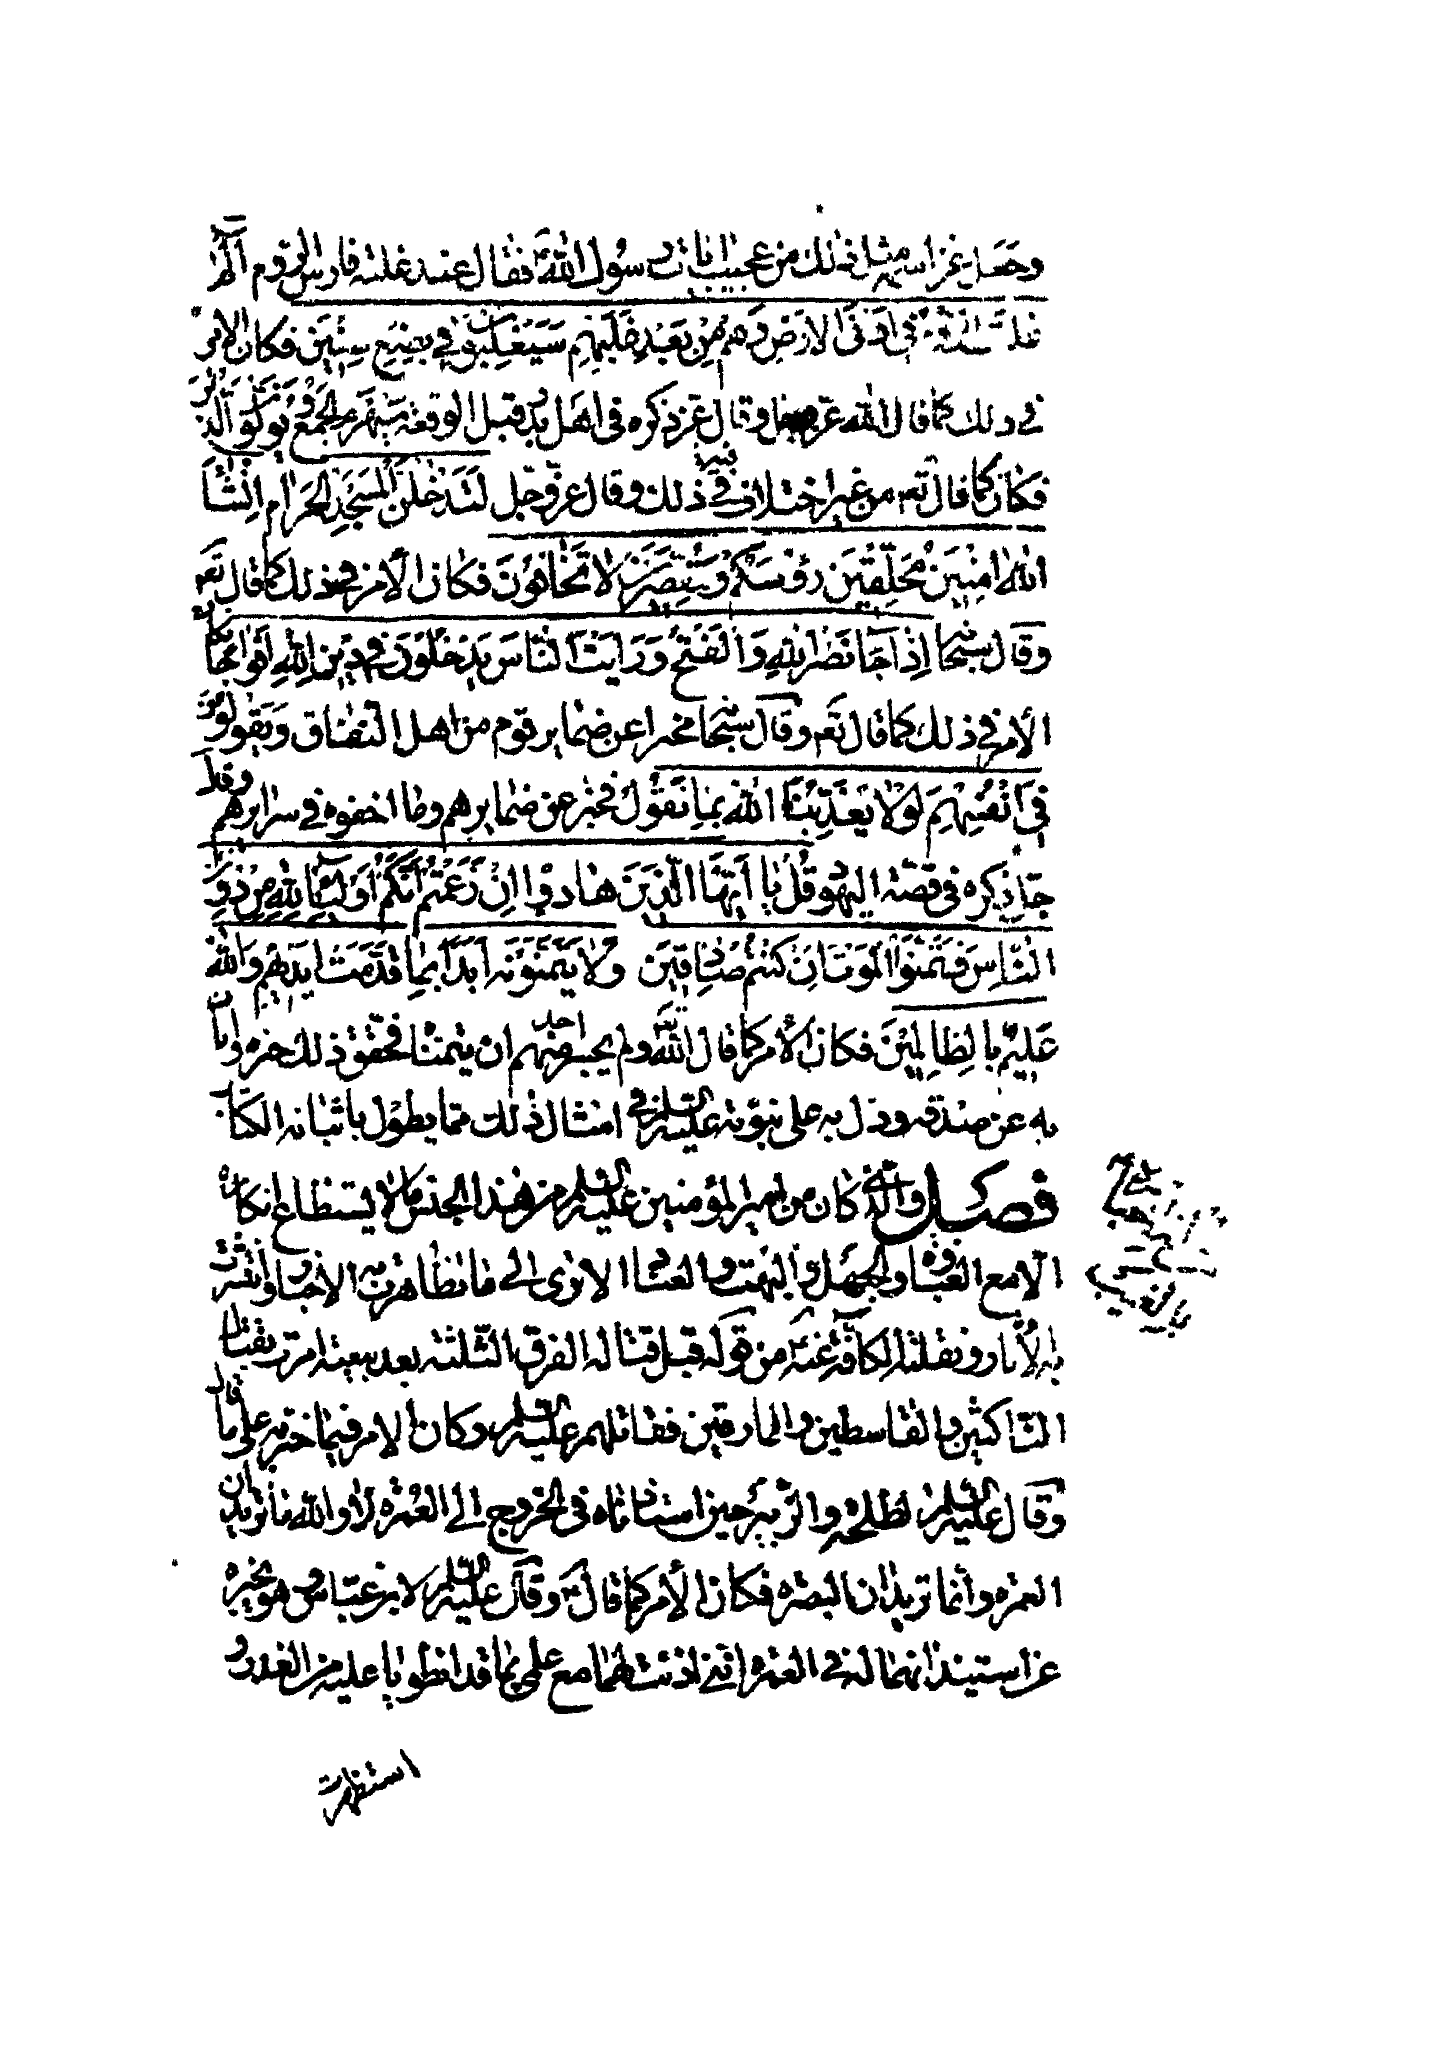 وجعل عز اسمه مثل ذلك من عجيب ايات رسول الله ص فقال عند غلبة فارس الروم الم
غلبت الروم في ادنى الارض وهم من بعد غلبهم سيغلبون في بضع سنين فكان الامر
في ذلك كما قال الله عز وجل وقال عز ذكره في اهل بدر قبل الوقعة سيهزم الجمع ويولون الدبر
فكان كما قال تع من غير اختلاف فيه في ذلك وقال عز وجل لتدخلن المسجد الحرام انشاء
الله امنين محلقين رؤسكم ومقصرين لا تخافون فكان الأمر في ذلك كما قال تع
وقال سبحانه إذا جاء نصر الله والفتح ورايت الناس يدخلون في دين الله افواجا فكان
الأمر في ذلك كما قال تع وقال سبحانه مخبرا عن ضماير قوم من اهل النفاق ويقولون
في انفسهم لولا يعذبنا الله بما نقول فخبر عن ضمايرهم وما اخفوه في سرايرهم وقال
جل ذكره في قصة اليهود قل يا أيها الذين هادوا ان زعمتم أنكم أولياء لله من دون
الناس فتمنوا الموت ان كنتم صادقين ولا يتمنونه أبدا بما قدمت ايديهم والله
عليم بالظالمين فكان الأمر كما قال الله ولم يجسر احد منهم ان يتمناه فحقق ذلك خبره وابان
به عن صدقه ودل به على نبوته عليه السلم في امثال ذلك مما يطول باثباته الكتاب
فصل والذي كان من امير المؤمنين عليه السلم من هذا الجنس ما لا يستطاع انكاره
الا مع الغباوة والجهل والبهت والعناد الا ترى الى ما تظاهرت به الاخبار وانتشرت
به الأثار ونقلته الكافة عنه من قوله قبل قتاله الفرق الثلثة بعد بيعته امرت بقتال
الناكثين والقاسطين والمارقين فقاتلهم عليه السلم وكان الامر فيما خبر به على ما قال
وقال عليه السلم لطلحة والزبير حين استاذناه في الخروج الى العمره لا والله ما تريدان
العمره وانما تريدان البصره فكان الأمر كما قال وقال عليه السلم لابن عباس وهو يخبره
عن استيذانهما له في العمره انني اذنت لهما مع علمي بما قد انطويا عليه من الغدر و
استظهرت